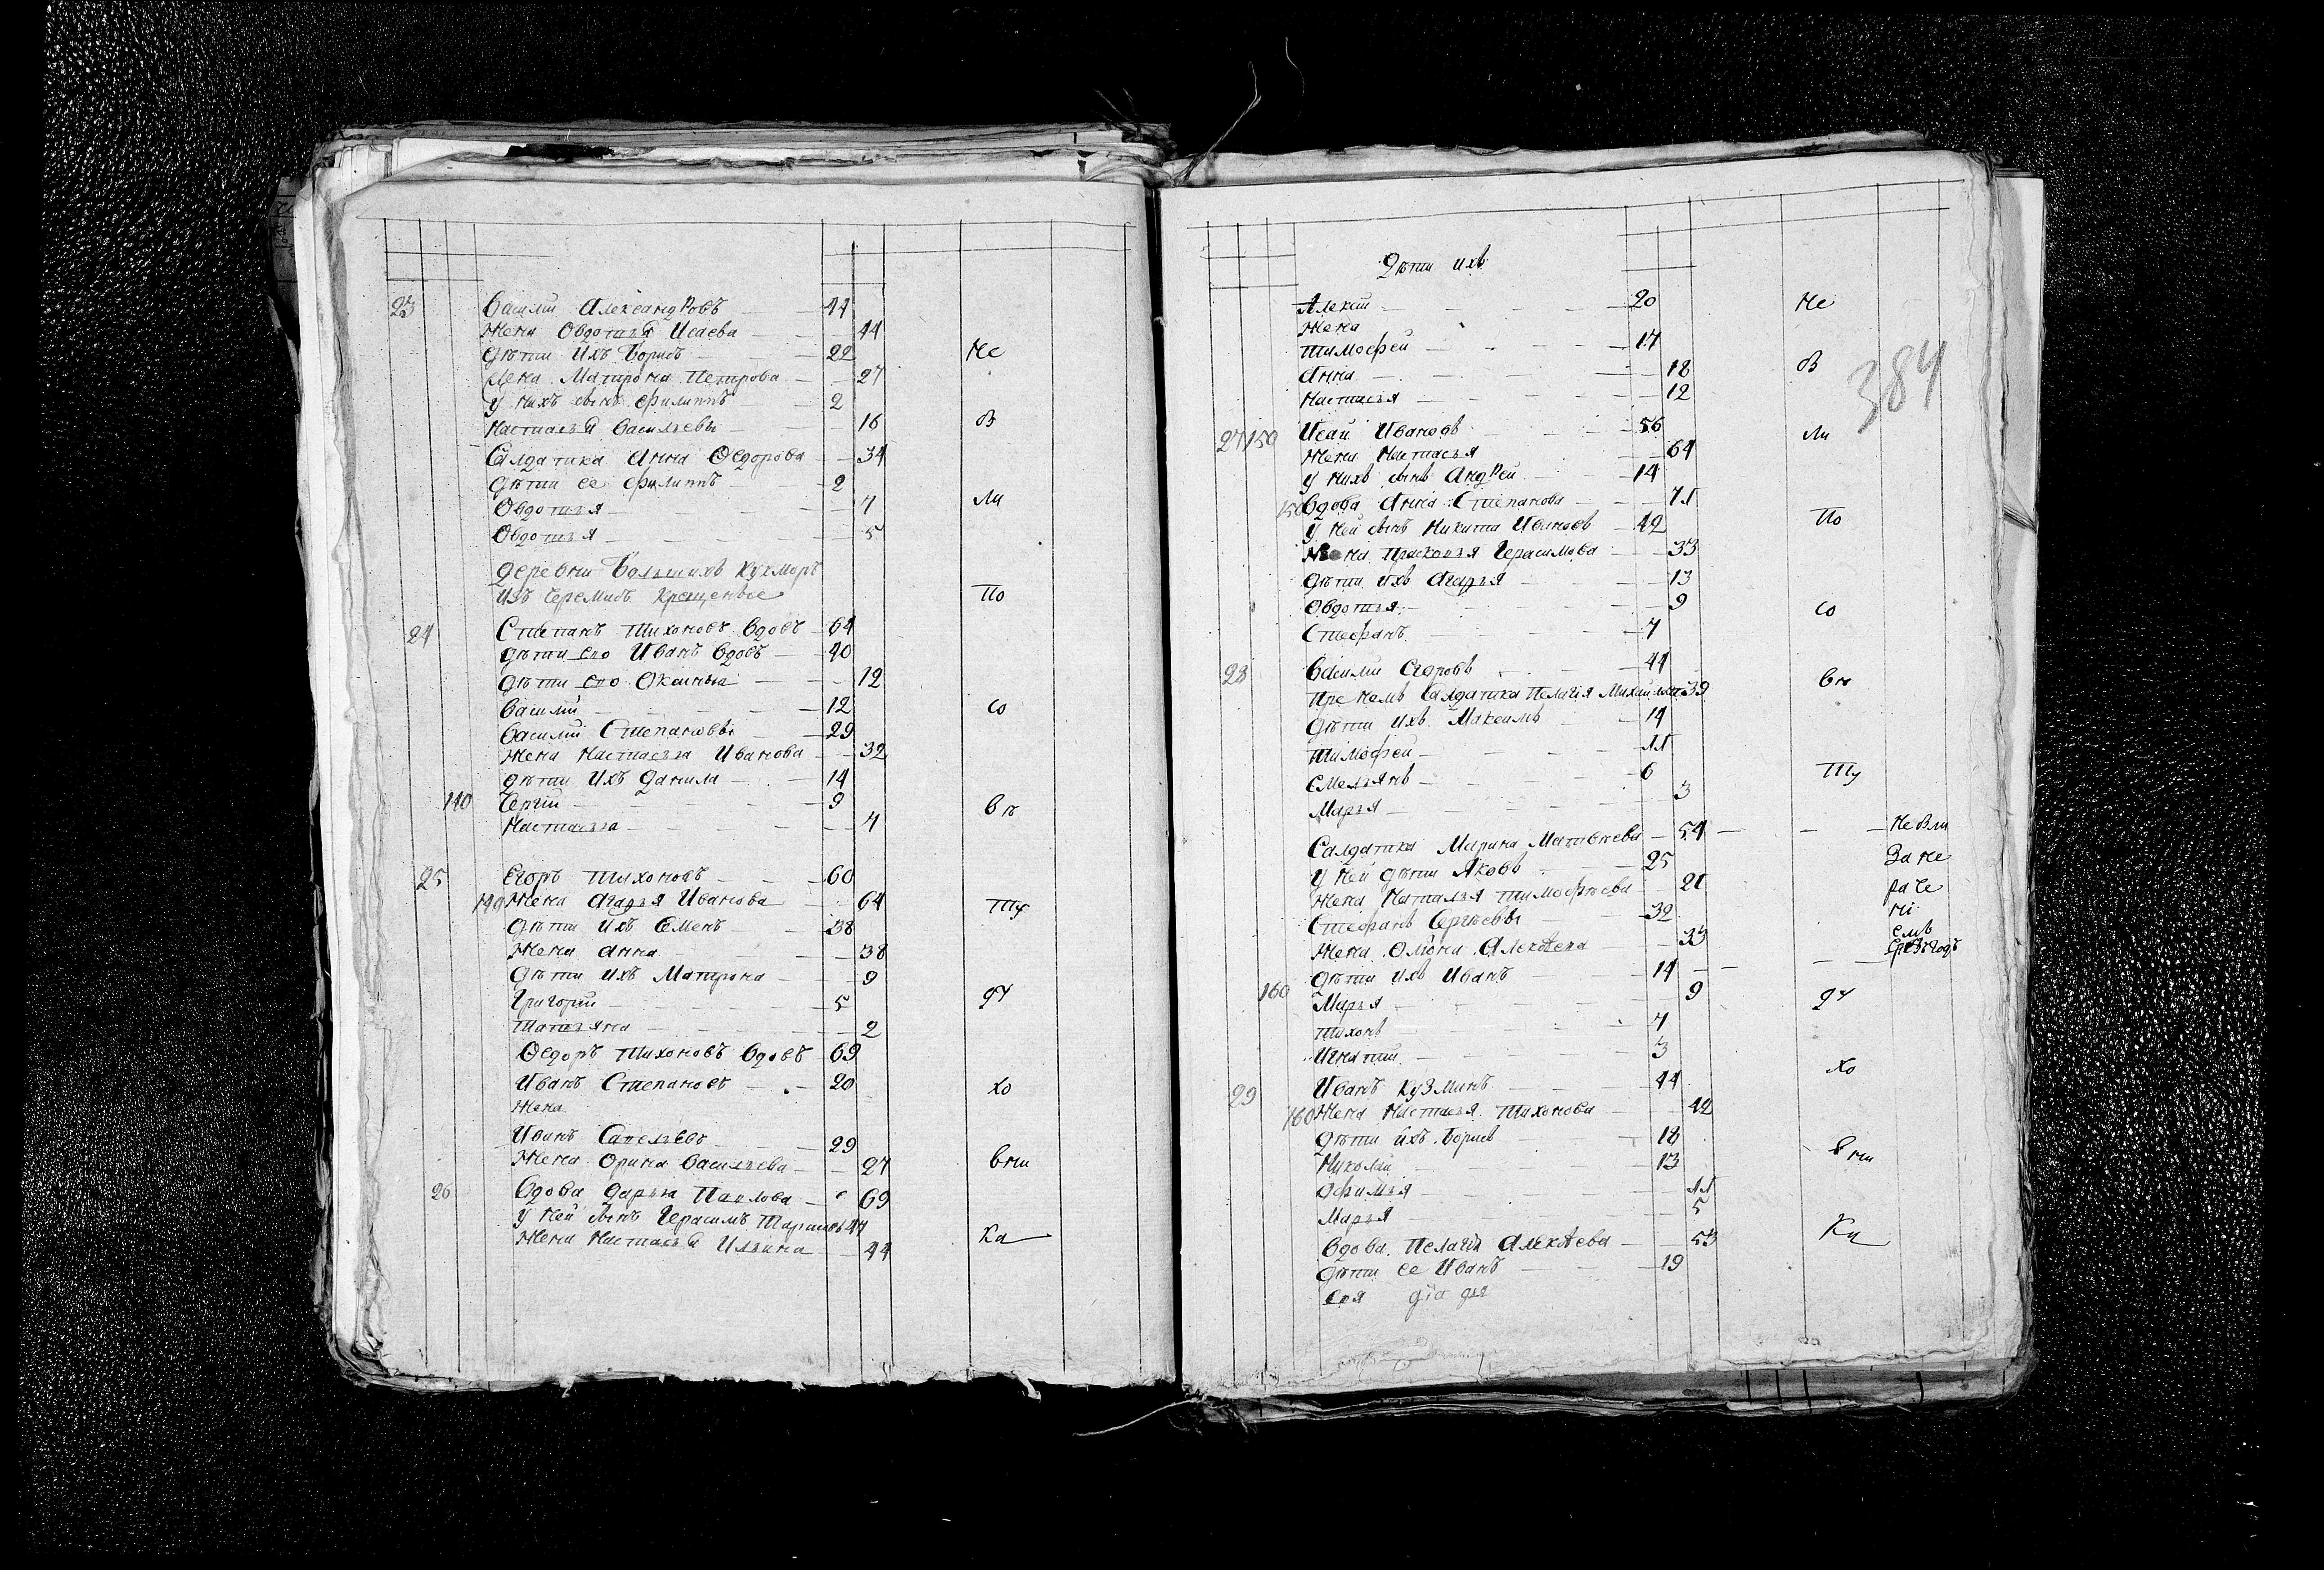 23 Василій Александровъ 44
Жена Овдотья Исаева 44
Дѣти Ихъ Борисъ 22 Не
Жена Матрона Петрова 27
у нихъ сынъ Филиппъ 2
Настасья Васильевы 16 В
Салдатка Анна Ѳедорова 34
дѣти ее Филиппъ 2
Овдотья 7 Ли
Овдотья 5
деревни Большихъ Кукморъ
Изъ Черемисъ крещеные По
24 Степанъ Тихоновъ Вдовъ 64
дѣти ево Иванъ Вдовъ 40
дѣти ево Оксинья 12
Василій 12 Со
Василий Степановъ 29
Жена Настасья Иванова 32
дѣти Ихъ Данила 14
140 Сергій 9 Вѣ
Настасья 4
25 Егоръ Тихоновъ 60
140 Жена Агафья Иванова 64 Ту
Дѣти Ихъ Семенъ 38
Жена Анна 38
Дѣти ихъ Матрона 9
Григорій 5 дч
Татьяна 2
Ѳедоръ Тихоновъ Вдовъ 69
Иванъ Степановъ 20 Хо
Жена
Иванъ Савельевъ 29
Жена Орина Васильева 27 Вни
26 Вдова Дарья Павлова 69
у ней сынъ Герасимъ 47
Жена Настасья Ильина 44 Ка
Дѣти ихъ
Алексій 20 Не
Жена
Тимофей 17
Анна 18 В
Настасья 12
384
27 150 Исай Ивановъ 56 Ли
Жена Настасья 64
у нихъ сынъ Андрей 14
150 Вдова Анна Степанова 71
у ней сынъ Никита Ивановъ 42 По
Жена Прасковья Герасимова 33
дѣти ихъ Агафья 13
Овдотья 9 Со
Стефанъ 7
28 Василій 44
При немъ Салдатка Пелагія 39 Вѣ
Дѣти ихъ Максимъ 14
Тимофей 11
Емельянъ 6 Ту
Марья 3
Салдатка Марина Матвѣева 54 Не Вли
у ней дѣти Яковъ 25 За не
Жена Наталья Тимофѣева 21 ра че
Стефанъ Сергѣевъ 32 ні
Жена Олена Алексѣева 33 емъ
дѣти ихъ Иванъ 14
160 Марья 9 дч
Тихонъ 7
Игнатий 3
29 Иванъ Кузминъ 44 Хо
160 Жена Настасья Тихонова 42
Дѣти ихъ Борисъ 18
Николай 13 Вни
Офимья 11
Марья 5
Вдова Пелагія Алексѣева 53 Ка
Дѣти ее Иванъ 19